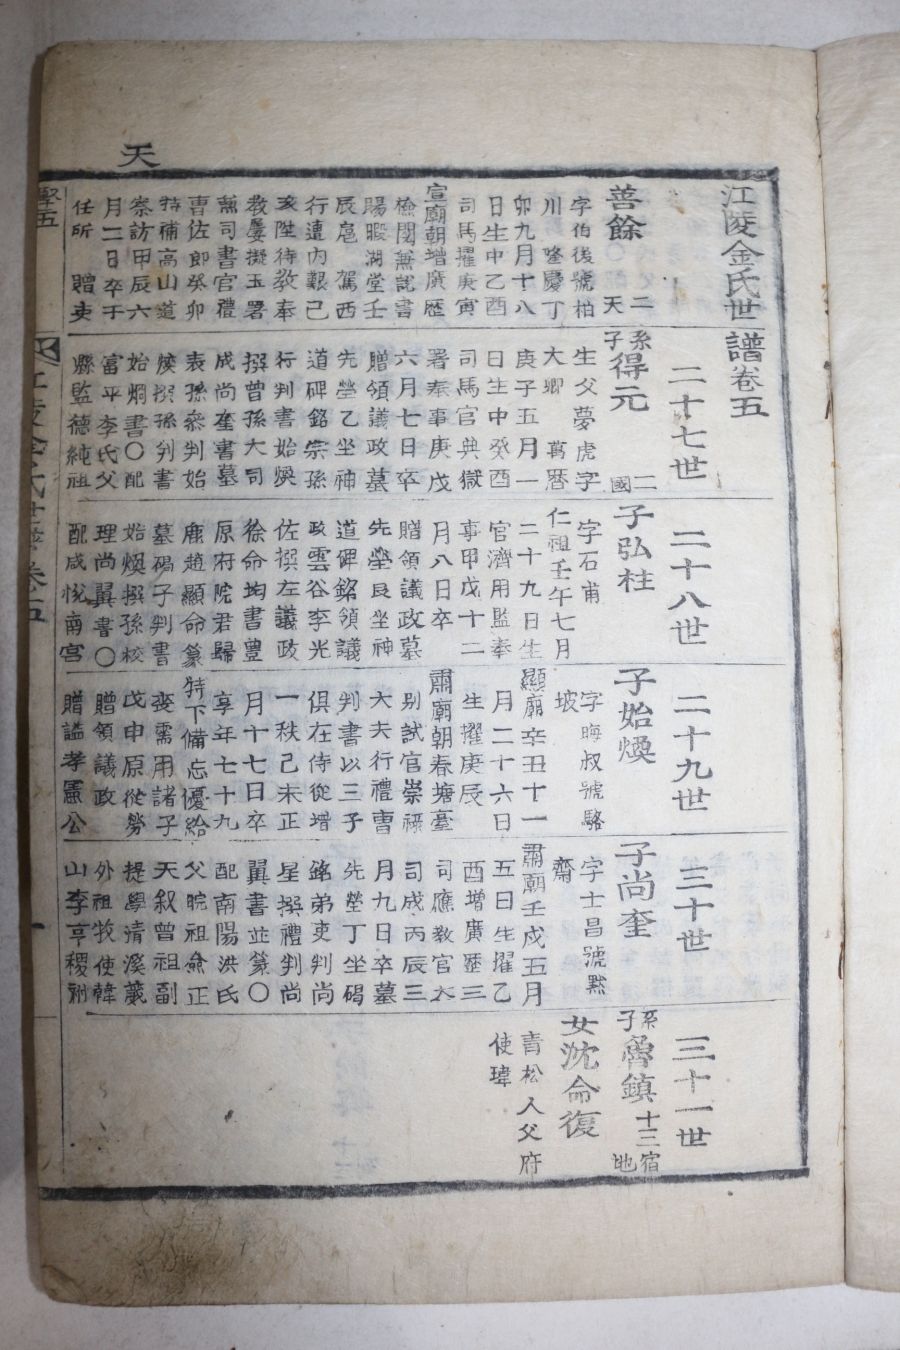 天
江陵金氏世譜卷五
善餘
二
天
字伯後號柏
川隆慶丁
卯九月十八
日生中乙酉
司馬擢庚寅
宣廟朝增廣歷
檢閱兼說書
賜暇湖堂壬
辰扈駕西
行遭內艱己
亥陞待敎奉
敎屢擬玉署
兼司書官禮
曹佐郞癸卯
特補高山道
察訪甲辰六
月二日卒于
任所贈吏
二十七世
系子得元
二
國
生父夢虎字
大卿萬曆
庚子五月一
日生中癸酉
司馬官典獄
署奉事庚戌
六月七日卒
贈領議政墓
先塋乙坐神
道碑銘宗孫
行判書始煥
撰曾孫大司
成尚奎書墓
表孫參判始
㷞撰孫判書
始炯書○配
富平李氏父
縣監德純祖
二十八世
子弘柱
字石甫
仁祖壬午七月
二十九日生
官濟用監奉
事甲戊十二
月八日卒
贈領議政墓
先塋艮坐神
道碑銘領議
政雲谷李光
佐撰左議政
徐命均書豊
原府院君歸
鹿趙顯命篆
墓碣子判書
始煥撰孫校
理尚翼書○
配咸悅南宮
二十九世
子始煥
字晦叔號駱
坡
顯廟辛丑十一
月二十六日
生擢庚辰
肅廟朝春塘臺
別試官崇祿
大夫行禮曹
判書以三子
俱在侍從增
一秩己未正
月十七日卒
享年七十九
特下備忘優給
喪需用諸子
戊申原從勞
贈領議政
贈謚孝憲公
三十世
子尚奎
字士昌號默
齋
肅廟壬戌五月
五日生擢乙
酉增廣歷三
司應敎官大
司成丙辰三
月九日卒墓
先塋丁坐碣
銘弟吏判尚
星撰禮判尚
翼書並篆○
配南陽洪氏
父晥祖兪正
天叙曾祖副
提學淸溪葳
外祖牧使韓
山李亨稷
三十一世
系子魯鎮
十三
宿
地
女沈命復
青松人父府
使瑋